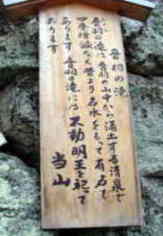 音羽の滝
音羽の滝は音羽の山中から湧出す清泉で
四季増減なく昔より名水をもって有名で
あります 音羽の滝には不動明王を祀って
あります
当山